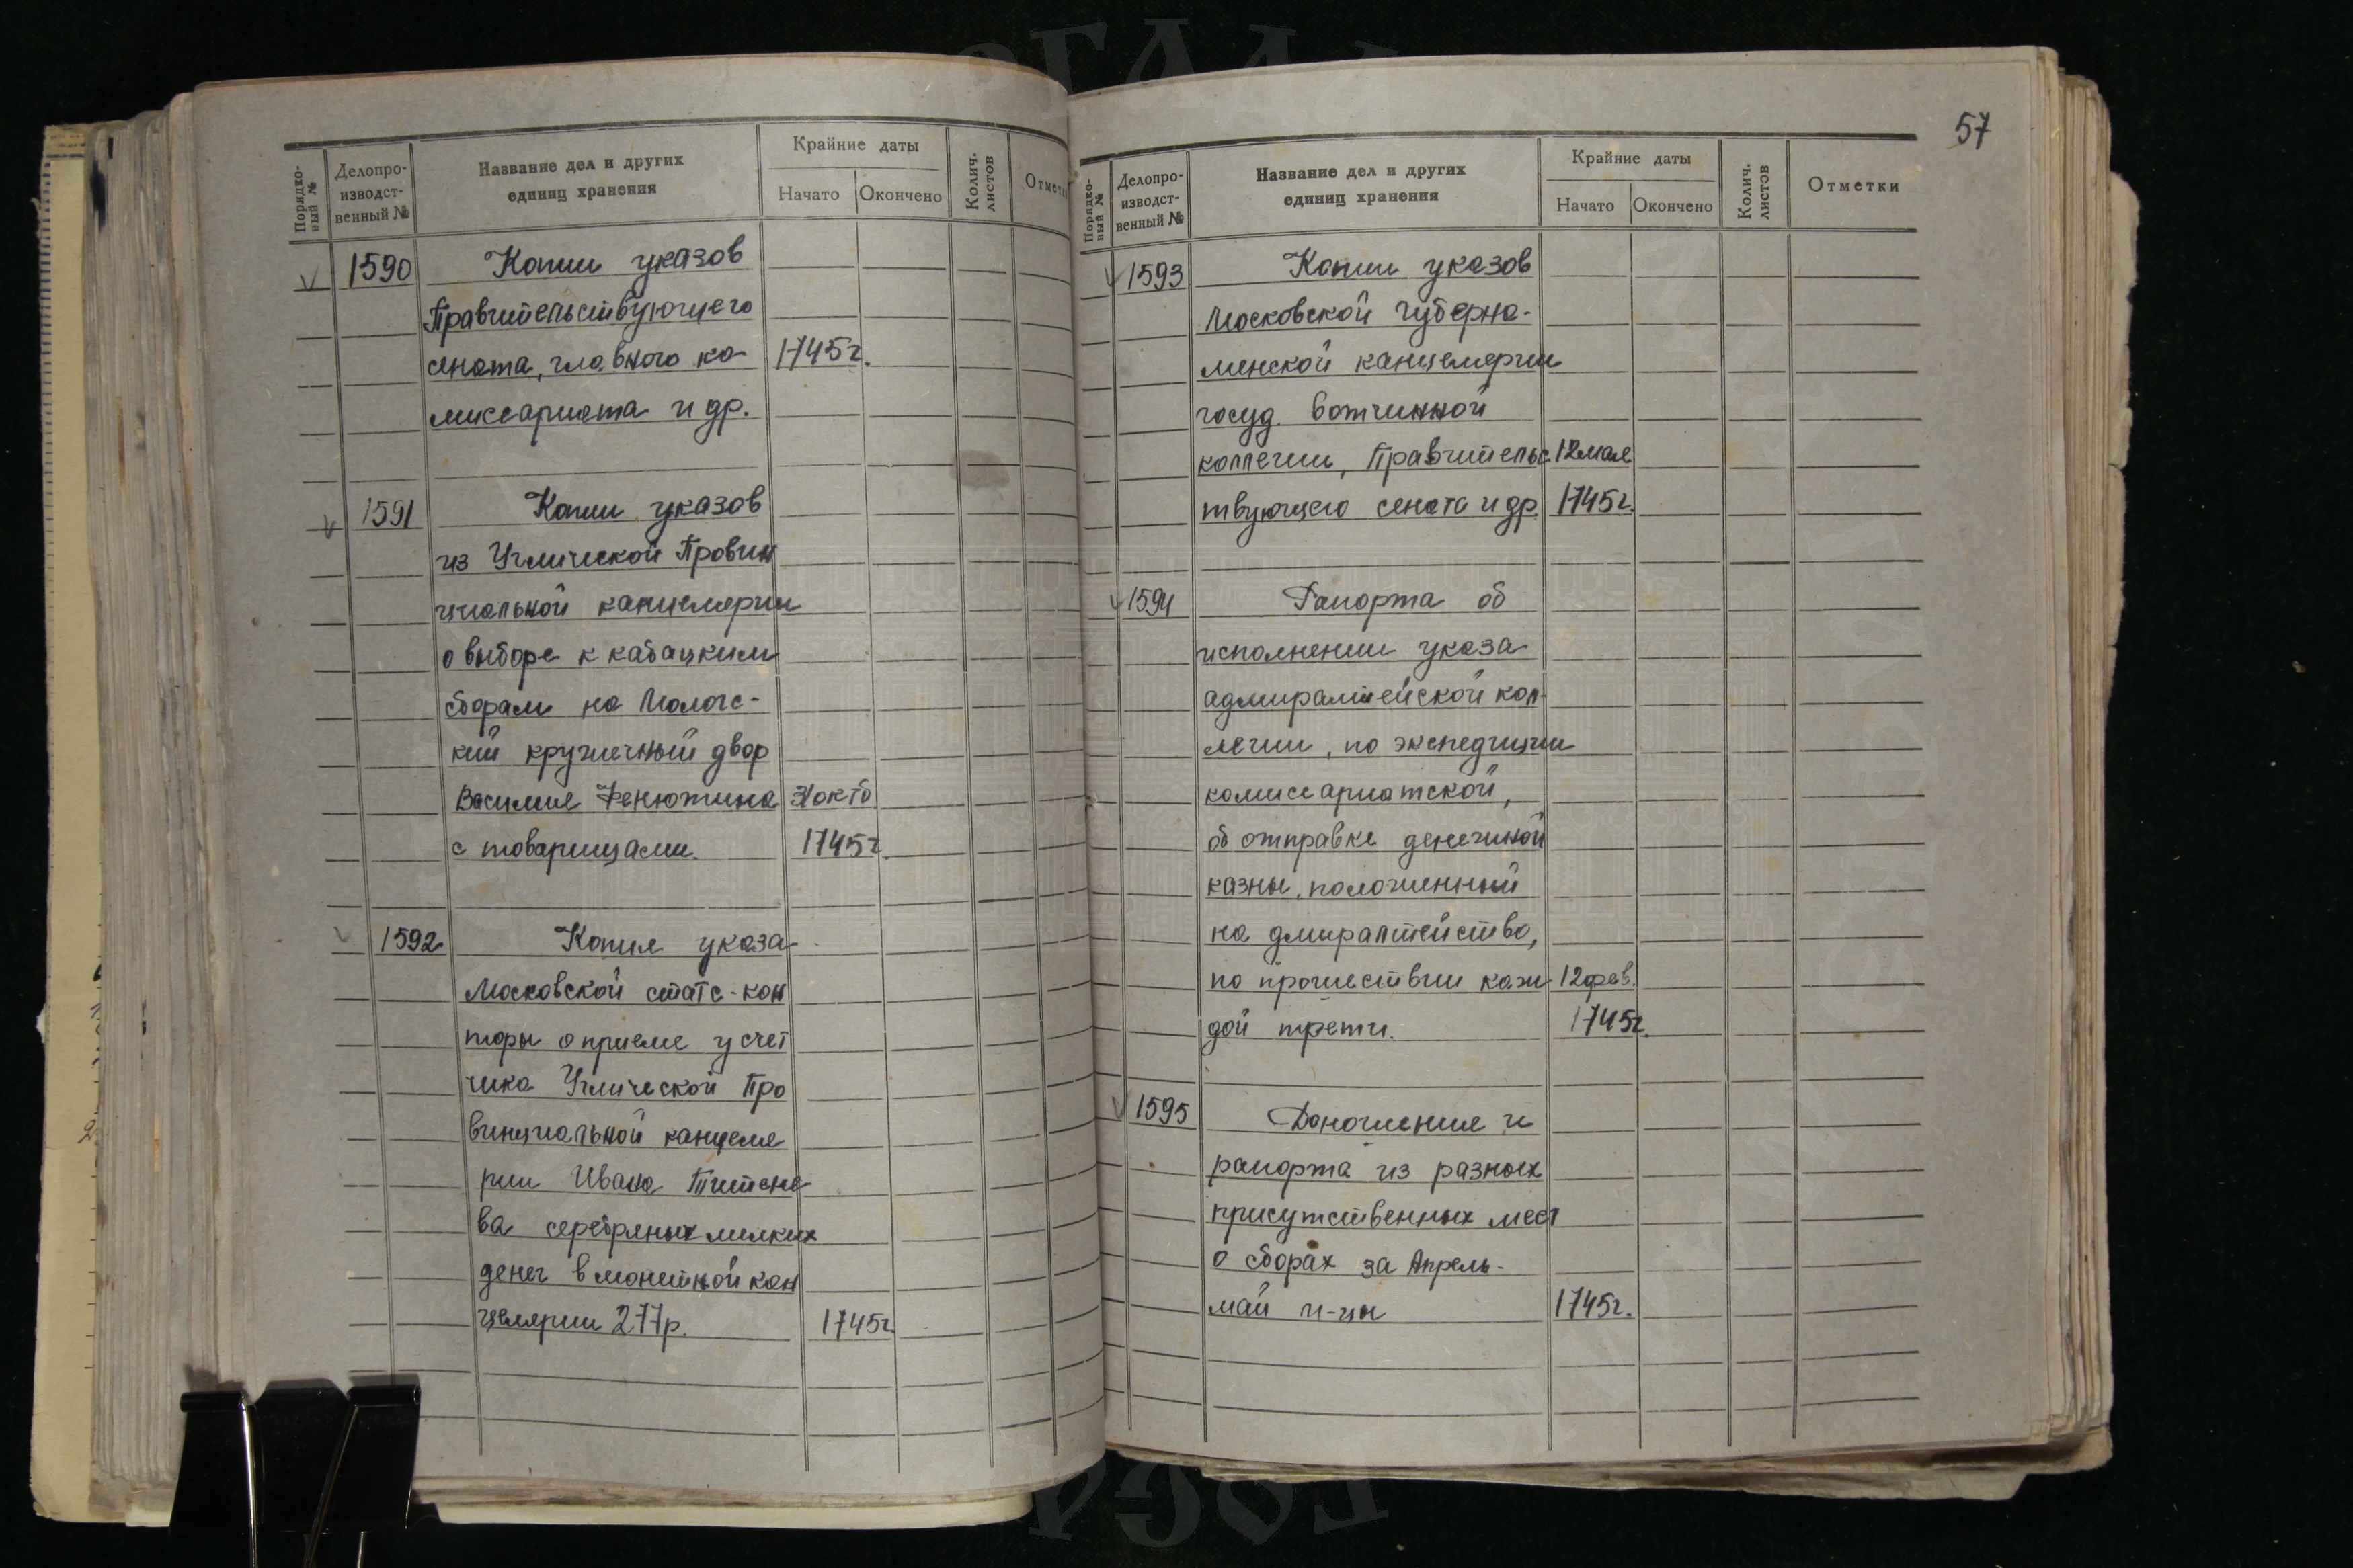 Порядко-
ный №
Делопро-
изводст-
венный №
Название дел и других
единиц хранения
Крайние даты
Начато Окончено
Колич.
листов
Отметки
1590 Копии указов
Правительствующего
сената, главного ко- 1745г.
миссариата и др.
1591 Копии указов
из Угличской Провин
циальной канцелярии
о выборе к кабацким
сборам на Мологс-
кий кружечный двор
Василия Фенютина 31 октб
с товарищами. 1745г.
1592 Копия указа
Московской статс-кон
торы о приеме у счет
чика Угличской Про
винциальной канцеля
рии Ивана
ва серебряных мелких
денег в монетной кан
целярии 277р. 1745г.
57
Порядко-
вый №
Делопро-
изводст-
венный №
Название дел и других
единиц хранения
Крайние даты
Начато Окончено
Колич.
листов
Отметки
1593 Копии указов
Московской губерна-
менской канцелярии
госуд. вотчинной
коллегии, Правительс 12 мая
твующего сената и др. 1745г.
1594 Рапорта об
исполнении указа
адмиралтейской кол-
легии, по экспедиции
комиссариатской,
об отправке денежной
казны, положенный
на дмиралтейство,
по прошествии каж- 12 фев.
дой трети. 1745г.
1595 Доношение и
рапорта из разных
присутственных мест
о сборах за Апрель-
май м-цы 1745г.